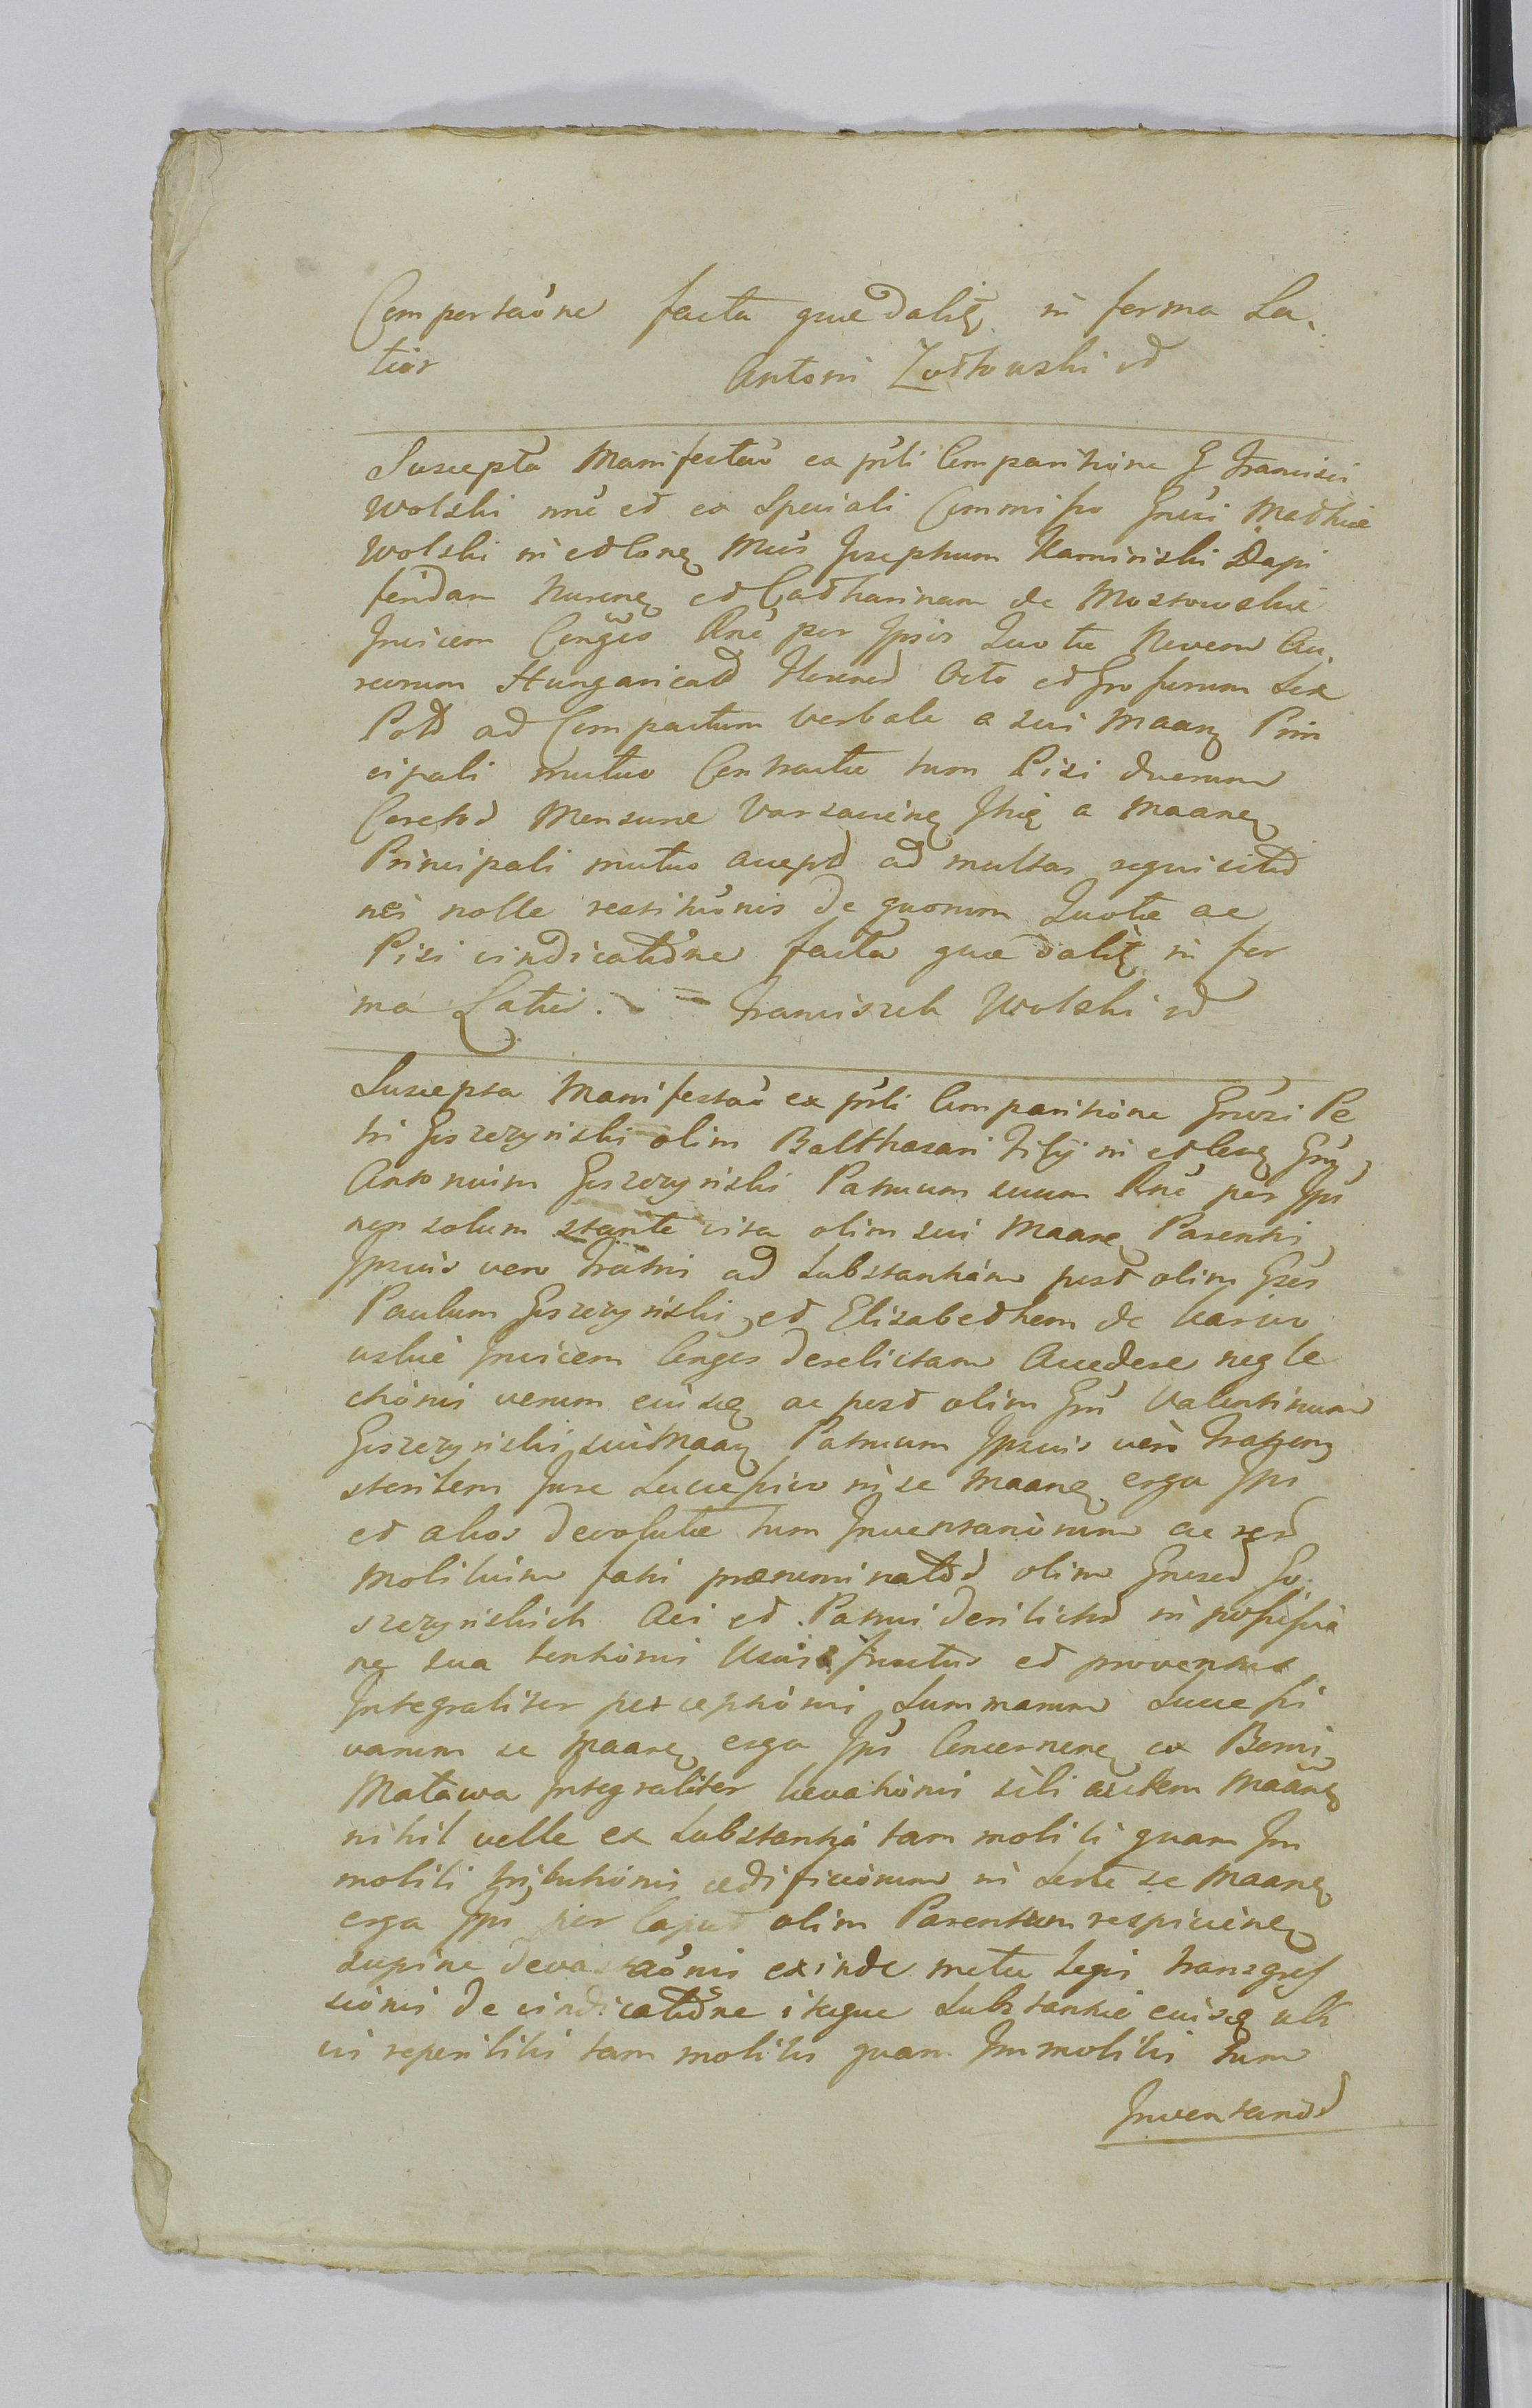 Comportaõne facta quæ daliꝫ in forma La-
tior Antoni Zołkowski
Suscepta Manifestaõ ex prsti Comparitione G Francisci
Wolski nõe et ex Speciali Commisso Grusi Mathiæ
Wolski in et cong Mcos Josephum Kaminski Dapi
feridam Nureng et Catharinam de Mostowskie
Invicem Conges Rne per Ipsos Quotæ Novem Au-
reorum Hungaricat Florenod Octo et Grossorum Sex
Polł ad Compactum Verbale a sui Maang Prin
cipali mutuo Contractæ tum Pisi duorum
Coretod Mensuræ Varsavieng Ibiꝫ a Maaneꝫ
Principali mutuo accepti ad multas requisitid
nes nolle restitiõnis de quorum Quotæ ac
Pisi vindicatiõne facta quæ daliꝫ in for
ma Latiõ. = Franciszek Wolski
Suscepta Manifestaõ ex prsti Comparitione Grusi Pe
tri Goszczynski olim Balthasari Filij in et cong Grũ
Antonium Goszczynski Patruum suum Rne per Ips
non solum stante vita olim sui Maaneꝫ Parentis
Ipsius vero Fratris ad Substantiam post olim Gsos
Paulum Goszczynski et Elisabetham de
uskie Invicem Conges derelictam Accedere negle
ctionis verum eius ac post olim Grũ Valentinum
Goszczynski sui Maaneꝫ Patruum Ipsius vero Fratrem
sterilem Jure Successivo in se Maaneꝫ erga Ips
et alios devolutæ tum Inventariorum ac rerũ
mobilium fati prænominatod olim Grusod Go
szczynskich Avi et Patrui derelictod in possessio
ne sua tentionis Usus fructus et proventus
Integraliter perceptionis Summarum Successi
varum se Maaneꝫ erga Ips Concerneneꝫ ex Bonis
Matawa Integraliter levationis sibi autem Maaneꝫ
nihil velle ex Substantia tam mobili quam Im
mobili tributionis ædificiorum in Sorte se Maaneꝫ
erga Ips per Caput olim Parentum respicieneꝫ
supine devastaõnis exinde metæ Legis transgres
sionis de vindicatiõne itaque Substantiæ eius ubi
vis reperibilis tam mobilis quam Immobilis tum
Inventariod